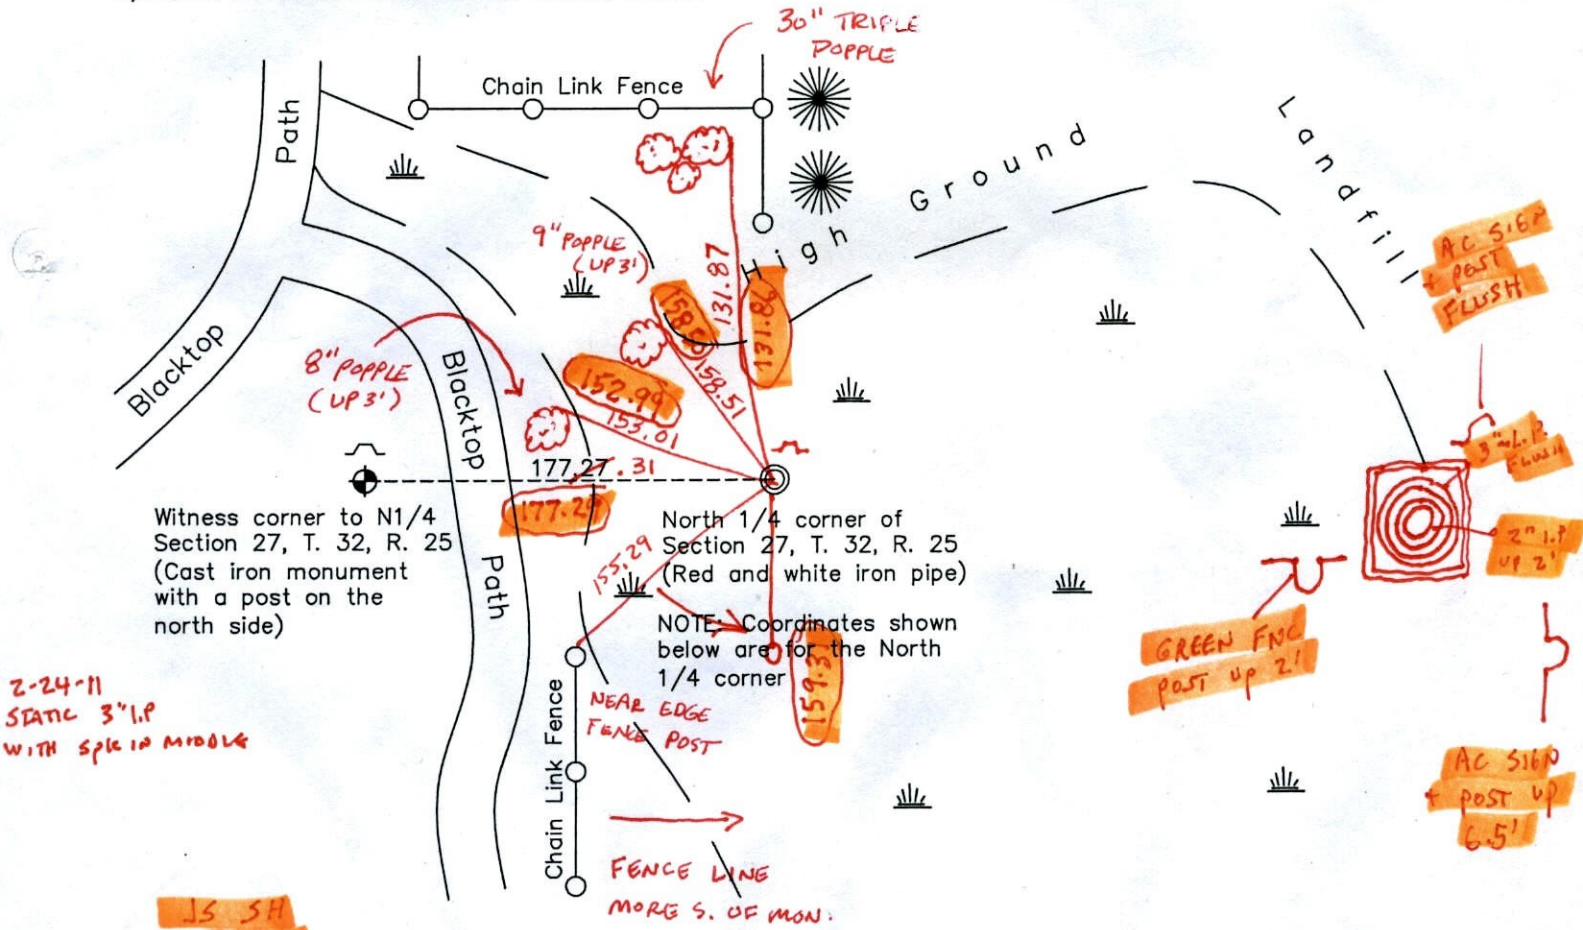 30" TRIPLE
POPPLE
Chain Link Fence
Path
Landfill
High Ground
AC SIGN
+ POST
FLUSH
9" POPPLE
(UP 3')
131.87
158.51
8" POPPLE
(UP 3')
Blacktop
Blacktop
152.99
153.01
177.27 .31
3" I.P.
FLUSH
Witness corner to N1/4
Section 27, T. 32, R. 25
(Cast iron monument
with a post on the
north side)
Path
North 1/4 corner of
Section 27, T. 32, R. 25
(Red and white iron pipe)
155.29
2" I.P
UP 2'
NOTE: Coordinates shown
below are for the North
1/4 corner
GREEN FNC
POST UP 2'
2-24-11
STATIC 3" I.P
WITH SPK IN MIDDLE
Chain Link Fence
NEAR EDGE
FENCE POST
AC SIGN
+ POST UP
6.5'
FENCE LINE
MORE S. OF MON.
JS SH